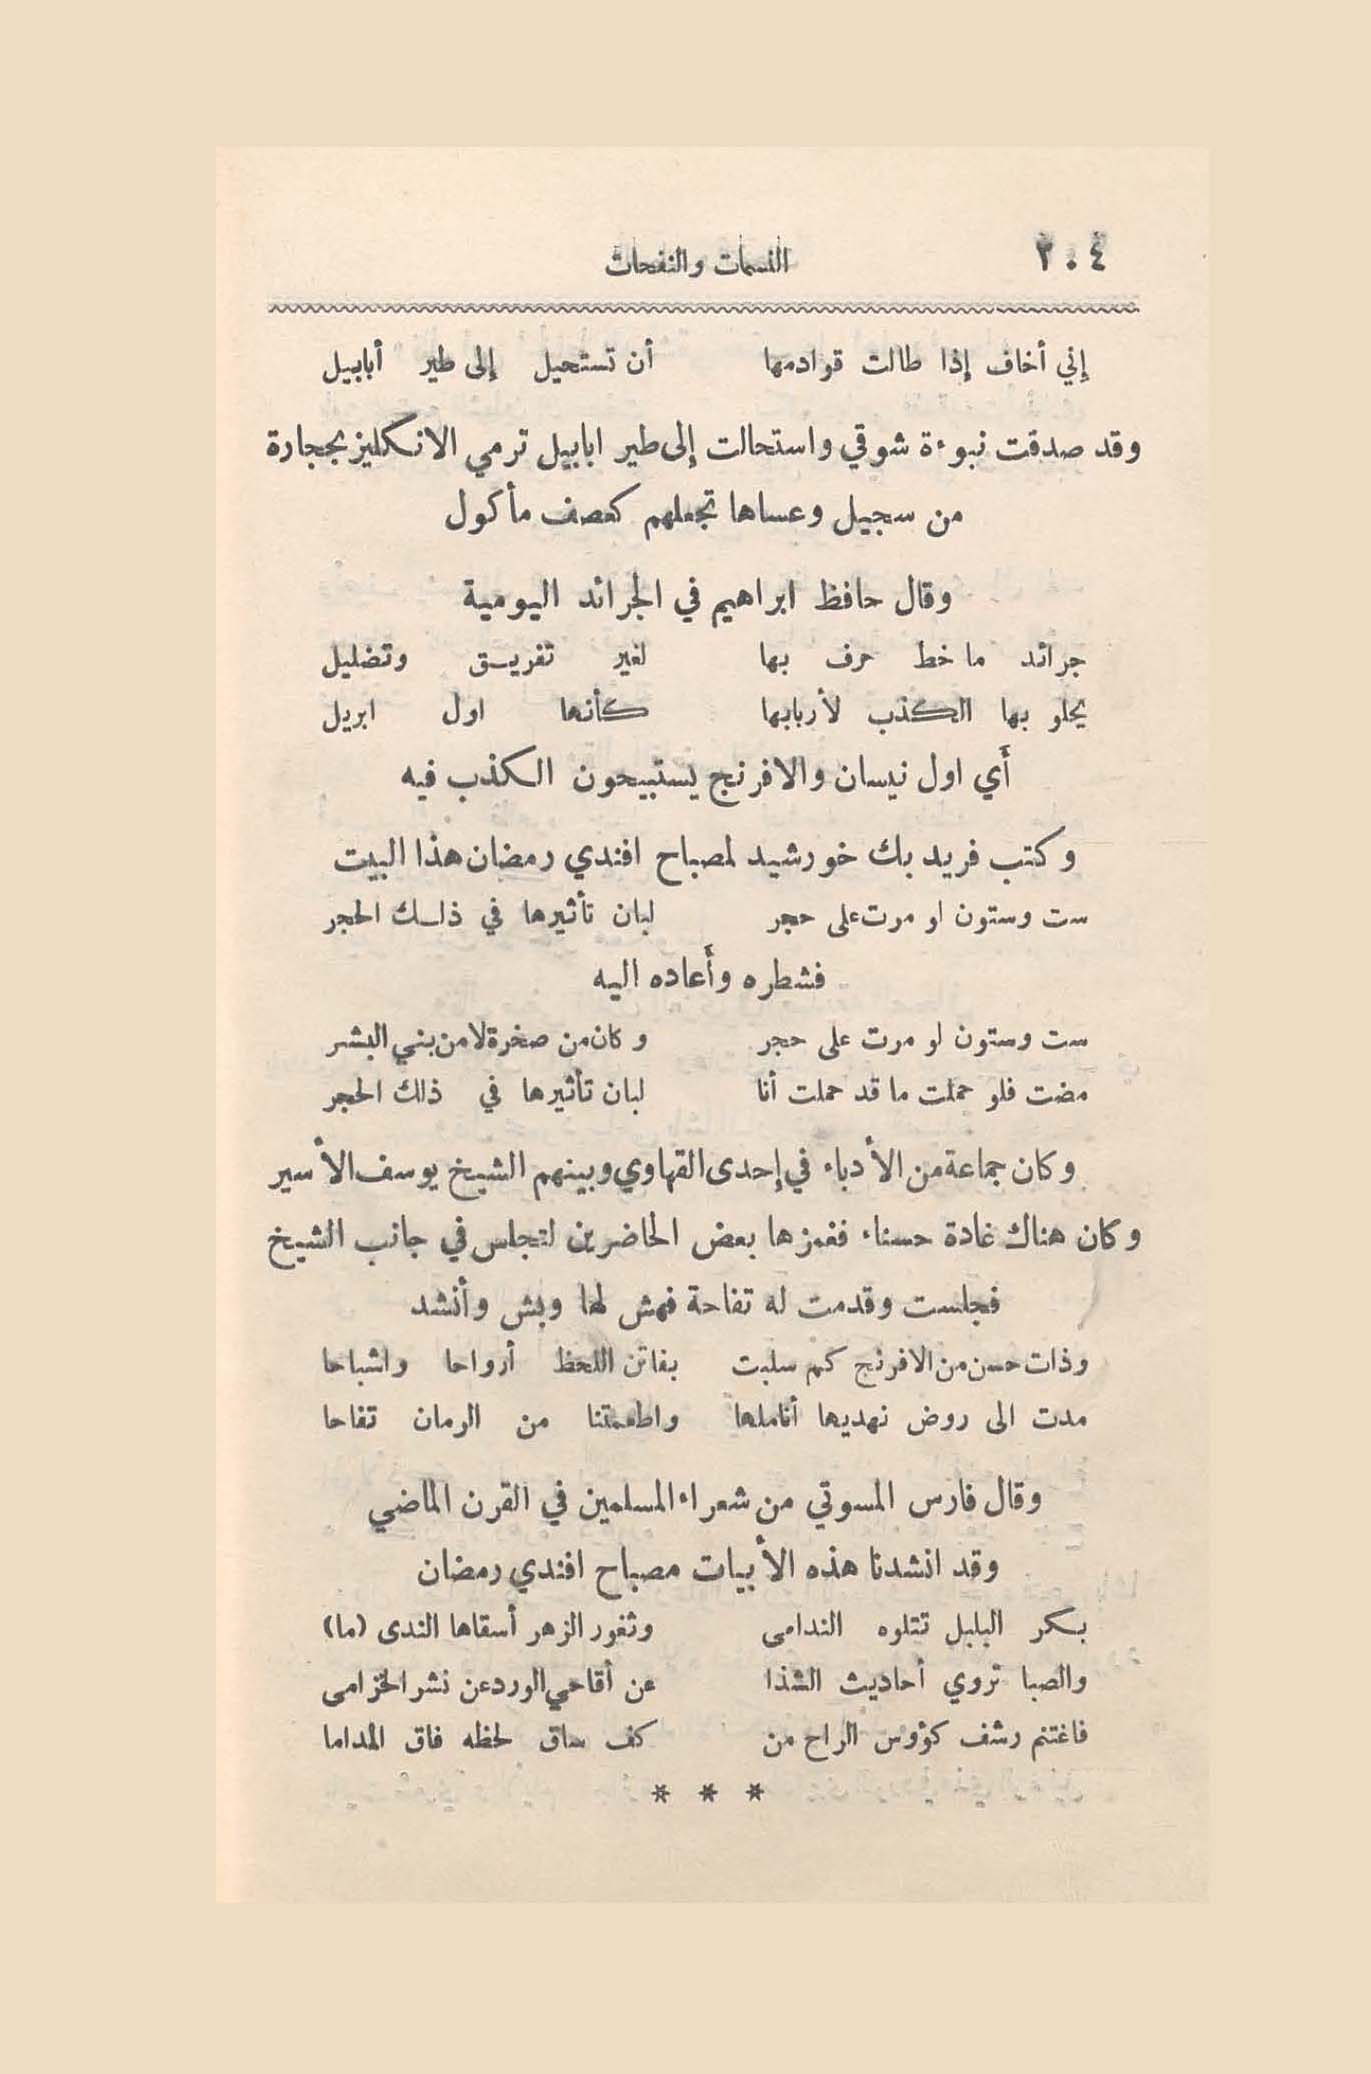 ٢٠٤
النسمات والنفحات
إني أخاف إذا طالت قوادمها أن تستحيل إلى طير أبابيل
وقد صدقت نبوءة شوقي واستحالت إلى طير ابابيل ترمي الانكليز بحجارة
من سجيل وعساها تجعلهم كعصف مأكول
وقال حافظ ابراهيم في الجرائد اليومية
جرائد ما خط حرف بها لغير تفريق وتضليل
يحلو بها الكذب لأربابها كأنها اول ابريل
أي اول نيسان والافرنج يستبيحون الكذب فيه
وكتب فريد بك خورشيد لمصباح افندي رمضان هذا البيت
ست وستون او مرت على حجر لبان تأثيرها في ذلك الحجر
فشطره وأعاده اليه
ست وستون لو مرت على حجر وكان من صخرة لا من بني البشر
مضت فلو حملت ما قد حملت أنا لبان تأثيرها في ذلك الحجر
وكان جماعة من الأدباء في إحدى القهاوي وبينهم الشيخ يوسف الأسير
وكان هناك غادة حسناء فغمزها بعض الحاضرين لتجلس في جانب الشيخ
فجلست وقدمت له تفاحة فهش لها وبش وأنشد
وذات حسن من الافرنج كم سلبت بفاتن اللحظ أرواحا واشباحا
مدت الى روض نهديها أناملها واطعمتنا من الرمان تفاحا
وقال فارس المسوتي من شعراء المسلمين في القرن الماضي
وقد انشدنا هذه الأبيات مصباح افندي رمضان
بكر البلبل تتلوه الندامى وثغور الزهر أسقاها الندى (ما)
والصبا تروي أحاديث الشذا عن أقاحي الورد عن نشر الخزامى
فاغتنم رشف كؤوس الراح من كف ساق لحظه فاق المداما
* * *